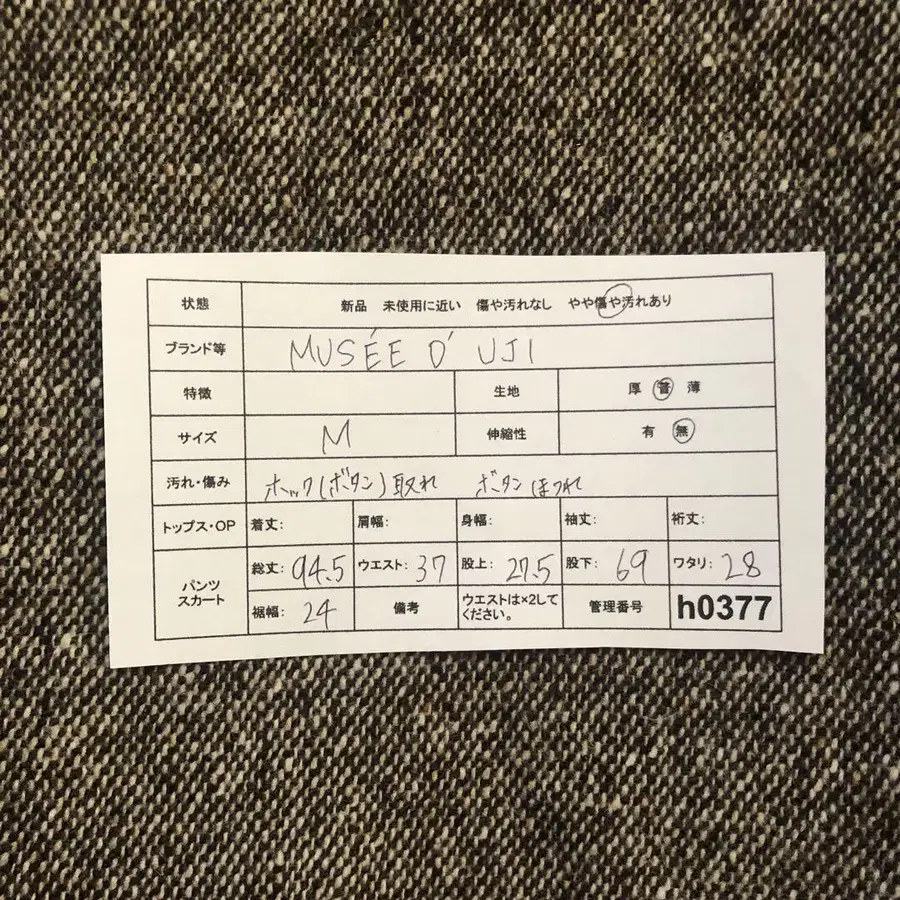 状態 新品 未使用に近い 傷や汚れなし やや傷や汚れあり
ブランド等 MUSÉE D' UJI
特徴 生地 厚 普 薄
サイズ M 伸縮性 有 無
汚れ・傷み ホック(ボタン)取れ ボタンほつれ
トップス・OP 着丈: 肩幅: 身幅: 袖丈: 裄丈:
パンツ スカート
総丈: 94.5 ウエスト: 37 股上: 27.5 股下: 69 ワタリ: 28
裾幅: 24 備考 ウエストは×2して
ください。 管理番号 h0377